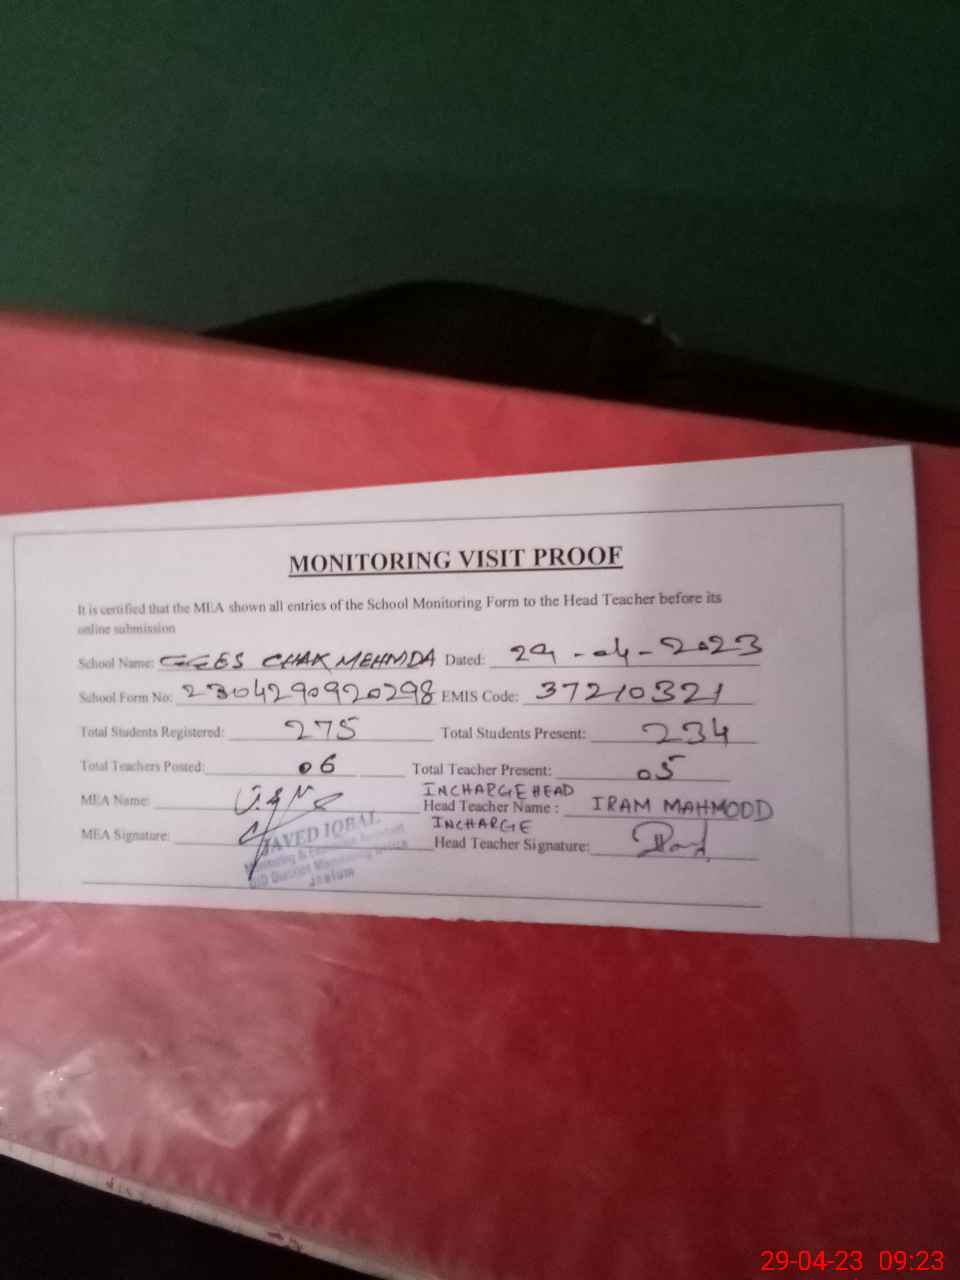 MONITORING VISIT PROOF
It is certified that the MEA shown all entries of the School Monitoring Form to the Head Teacher before its
online submission
School Name: GGES CHAK MEHMDA Dated: 29-04-2023
School Form No: 2304290920298 EMIS Code: 37210321
Total Students Registered: 275 Total Students Present: 234
Total Teachers Posted: 06 Total Teacher Present: 05
INCHARGE HEAD
MEA Name: Head Teacher Name : IRAM MAHMODD
INCHARGE
MEA Signature: Head Teacher Signature:
JAVED IQBAL
Monitoring & Assistant
District Monitoring
Jhelum
29-04-23 09:23